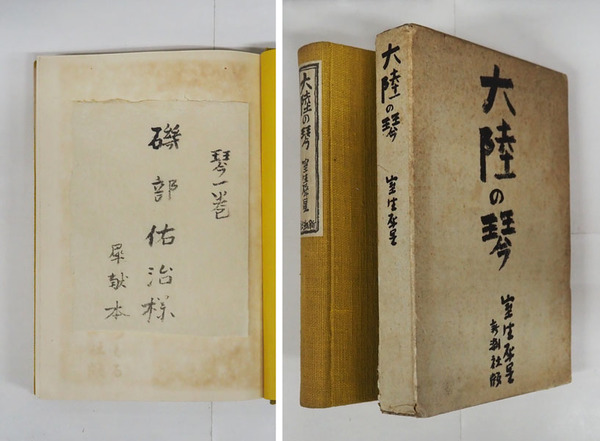 琴一巻
磯部佑治様
犀献本
大陸の琴
室生犀星
新潮社版
大陸の琴
室生犀星
大陸の琴
室生犀星
新潮社版